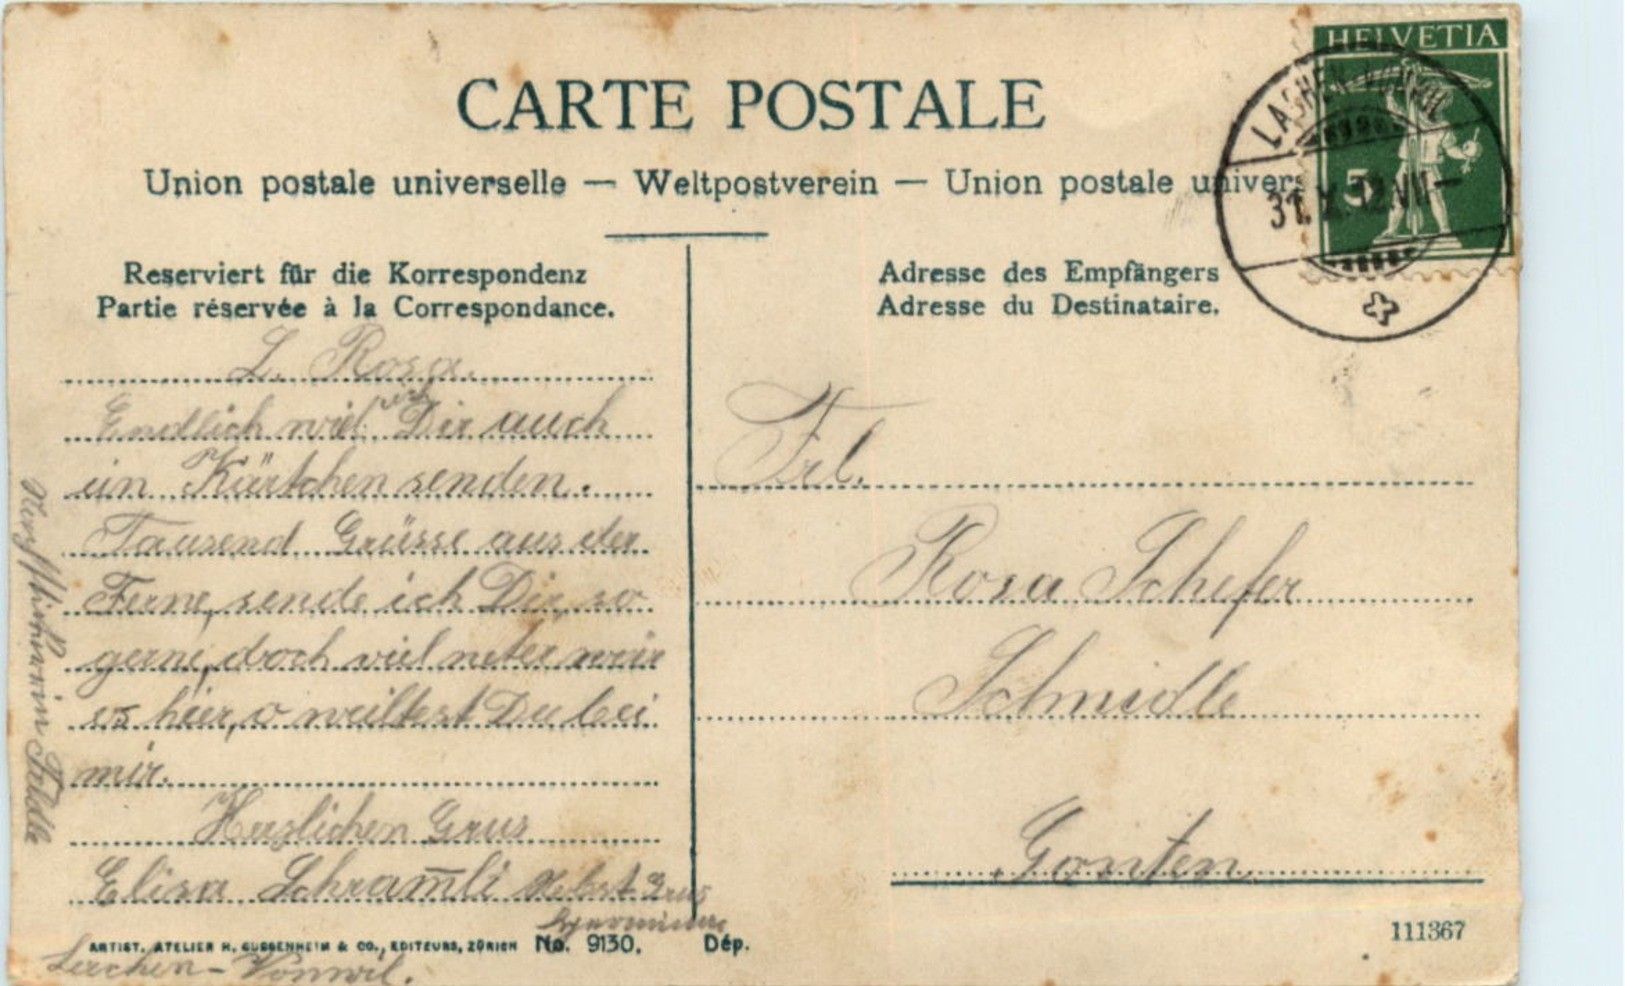 HELVETIA
5
LACHEN-VONWIL
31. X. 12. VII
CARTE POSTALE
Union postale universelle — Weltpostverein — Union postale univers
Reserviert für die Korrespondenz
Partie réservée à la Correspondance.
Adresse des Empfängers
Adresse du Destinataire.
L. Rosa.
Endlich wil Dir auch
ein Kärtchen senden.
Tausend Grüsse aus der
Ferne, sende ich Dir, so
gerne, doch viel neter wär
es hier, o weiltest Du bei
mir.
Herzlichen Grus
Elisa Schram̄li Nebst Grus
Lachen-Vonwil.
Frl.
Rosa Schefer
Schmidle
Gonten
ARTIST. ATELIER H. GUGGENHEIM & CO., EDITEURS, ZÜRICH No. 9130. Dép.
111367